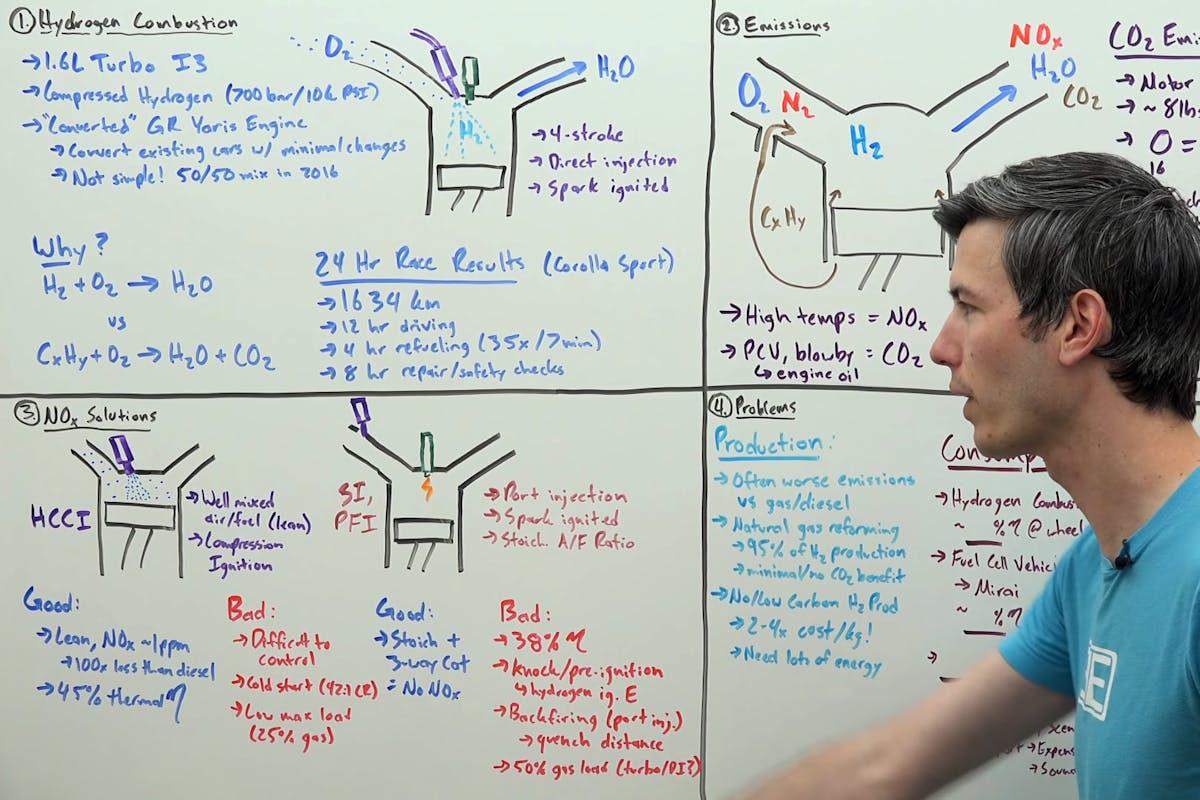 1. Hydrogen Combustion
→1.6L Turbo I3
→Compressed Hydrogen (700 bar/10k PSI)
→"Converted" GR Yaris Engine
→Convert existing cars w/ minimal changes
→Not simple! 50/50 mix in 2016
O2
H2
H2O
→4-stroke
→Direct injection
→Spark ignited
Why?
H2 + O2 → H2O
vs
CxHy + O2 → H2O + CO2
24 Hr Race Results (Corolla Sport)
→1634 km
→12 hr driving
→4 hr refueling (35x/7min)
→8 hr repair/safety checks
2. Emissions
O2 N2
H2
CxHy
NOx
H2O
CO2
→High temps = NOx
→PCV, blowby = CO2
↳engine oil
CO2
→Motor
→~8lbs
→O =
16
3. NOx Solutions
HCCI
→Well mixed
air/fuel (lean)
→Compression
Ignition
Good:
→Lean, NOx ~1ppm
→100x less than diesel
→45% thermal η
Bad:
→Difficult to
control
→Cold start (42:1 CR)
→Low max load
(25% gas)
SI,
PFI
→Port injection
→Spark ignited
→Stoich. A/F Ratio
Good:
→Stoich +
3-way Cat
= No NOx
Bad:
→38% η
→Knock/pre-ignition
↳hydrogen ig. E
→Backfiring (port inj.)
→quench distance
→50% gas load (turbo/DI?)
4. Problems
Production:
→Often worse emissions
vs gas/diesel
→Natural gas reforming
→95% of H2 production
→minimal/no CO2 benefit
→No/Low Carbon H2 Prod
→2-4x cost/kg!
→Need lots of energy
→Hydrogen
~ % η @ wheel
→Fuel Cell
→Mirai
~ % η
→
E